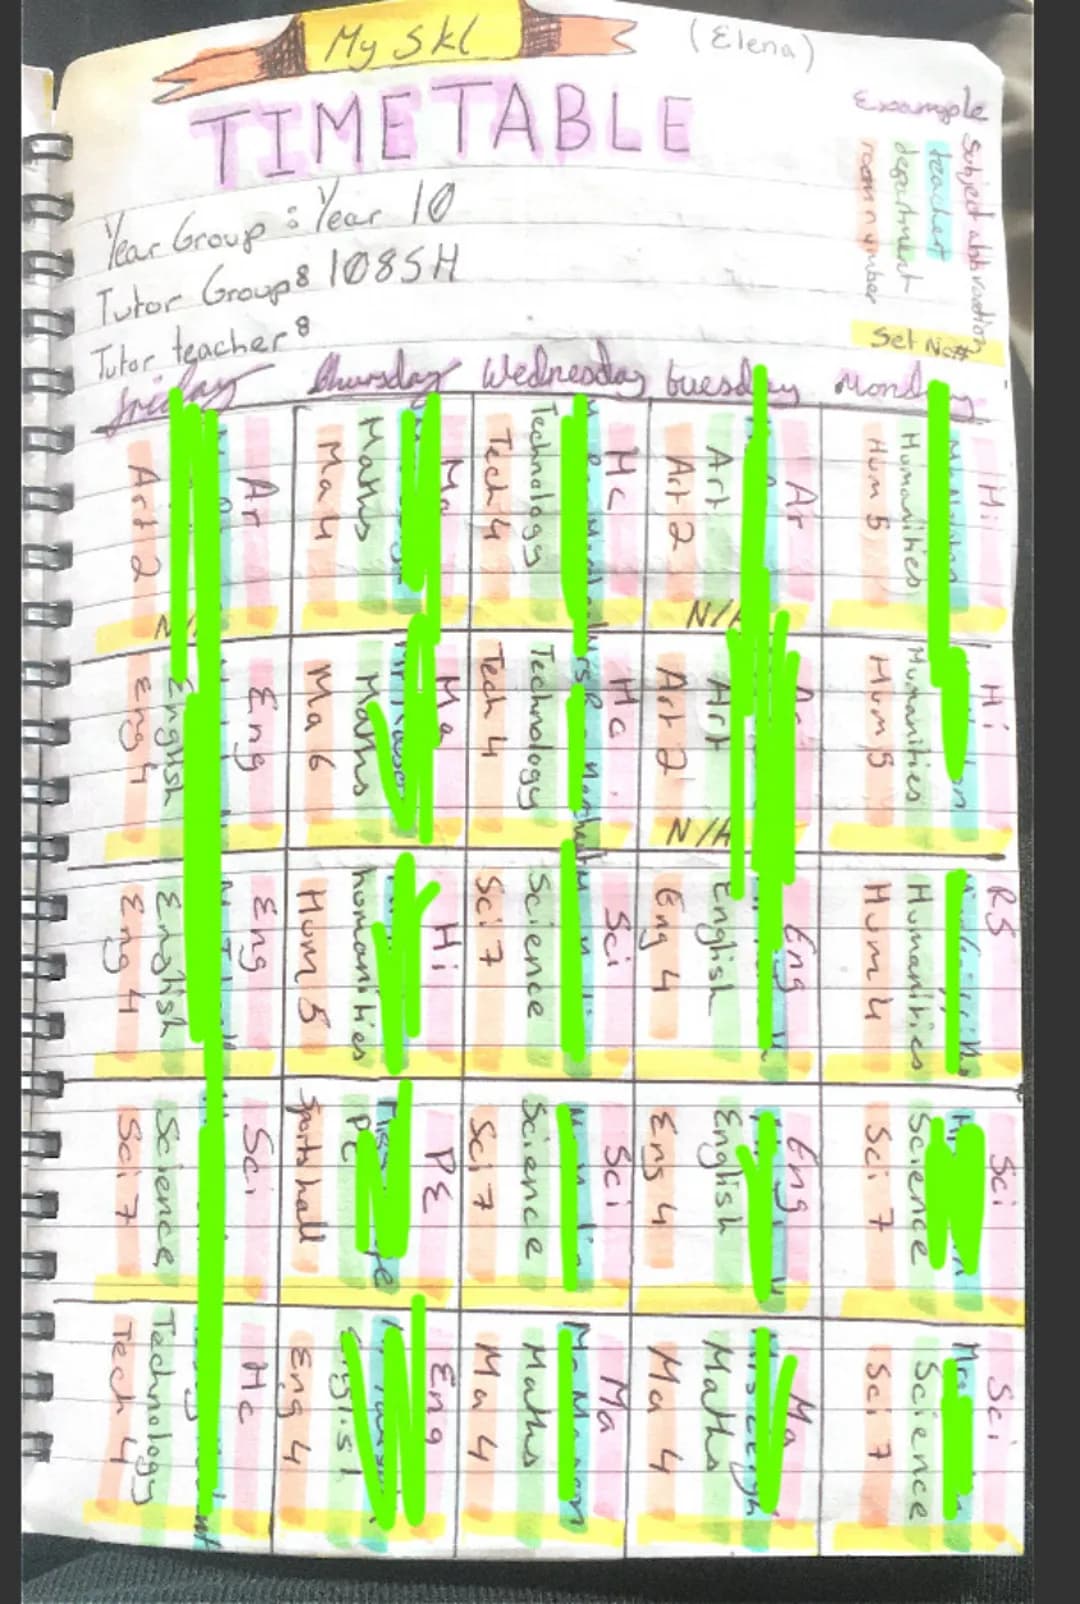 My Skl
(Elena)
TIMETABLE
Example
Subject abbrvation
teacher
department
room number
Set No#
Year Group : Year 10
Tutor Group: 1085H
Tutor teacher:
friday
thursday
Wednesday
tuesday
Monday
Hi
Humanities
Hum 5
Hi
Humanities
Hum 5
RS
Humanities
Hum 4
Sci
Science
Sci 7
Sci
Science
Sci 7
Ar
Art
Art 2
N/A
Ar
Art
Art 2
N/A
Eng
English
Eng 4
Eng
English
Eng 4
Ma
Maths
Ma 4
Hc
Technology
Tech 4
Hc
Technology
Tech 4
Sci
Science
Sci 7
Sci
Science
Sci 7
Ma
Maths
Ma 4
Ma
Maths
Ma 4
Ma
Maths
Ma 6
Hi
humanities
Hum 5
PE
PE
Sports hall
Eng
Eng 4
Ar
Art 2
Eng
English
Eng 4
Eng
English
Eng 4
Sci
Science
Sci 7
Hc
Technology
Tech 4